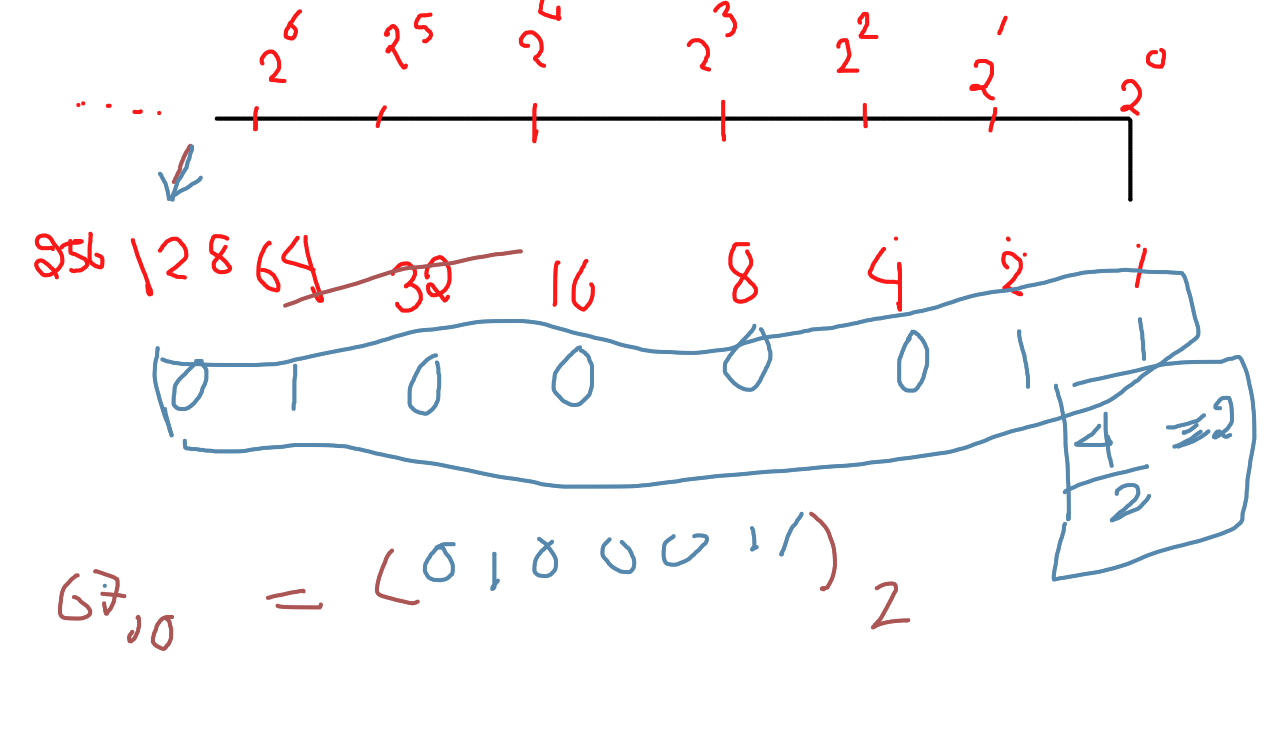 2⁶ 2⁵ 2⁴ 2³ 2² 2¹ 2⁰
.....
256 128 64 32 16 8 4 2 1
0 1 0 0 0 0 1 1
4/2 = 2
67₁₀ = (01000011)₂